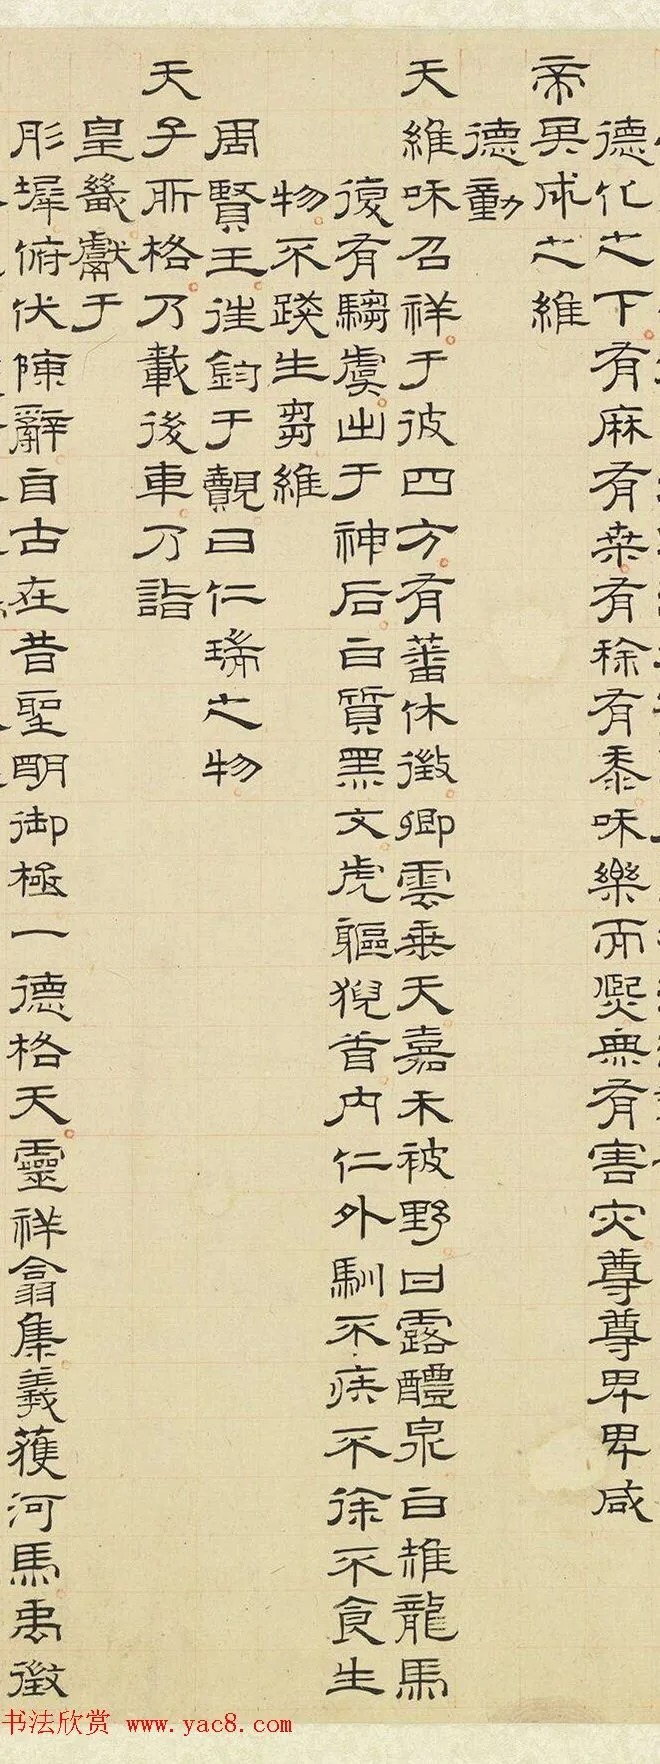 德化之下有麻有桒有稌有黍咊樂而熙無有害灾尊尊卑卑咸
帝畀成之維
德動
天維咊召祥于彼四方有蕃休徵卿雲乘天嘉禾被野甘露醴泉白雉龍馬
復有騶虞出于神后白質黑文虎軀猊首内仁外馴不疾不徐不食生
物不踐生芻維
周賢王徃鈞于覿曰仁瑞之物
天子所格乃載後車乃詣
皇畿獻于
彤墀俯伏陳辭自古在昔聖明御極一德格天靈祥翕集羲獲河馬禹徵
书法欣赏 www.yac8.com